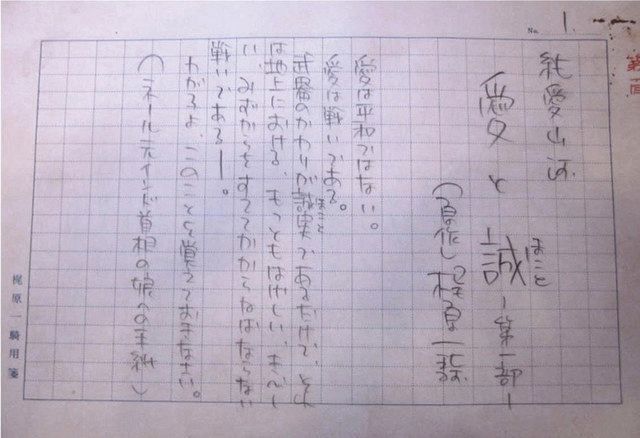 No. 1.
第一回
純愛山河
愛と誠 ―第一部―
まこと
(原作) 梶原一騎
愛は平和ではない。
愛は戦いである。
武器のかわりが誠実であるだけで、それ
まこと
は地上における、もっともはげしい、きびし
い、みずからをすててかからねばならない
戦いである――。
わが子よ、このことを覚えておきなさい。
(ネール元インド首相の娘への手紙)
梶原一騎用箋